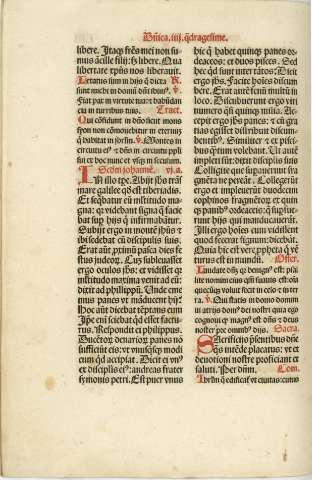 Dñica .iiij. q̃dragesime.
libere. Itaq; fr̃es mei non su-
mus ãcille filij: s; libere. Qua
libertare xp̃us nos liberauit.
Letatus sum in his q̃ dicta R̃.
sunt michi in domũ dñi
Fiat pax in virtute tua: et
cia in turribus tuis. Tract.
Qui cõfidunt in dño sicut mons
syon non cõmouebitur in eternũ
q̃ habitat in ỹ.
circuitu et dñs in circuitu ppli
sui ex hoc nunc et vsq; in seculum.
Scdm Johannẽ. vj.a.
In illo tpe. Abijt Jhs trãs
mare galilee q̃d est tiberiadis.
Et seq̃batur eũ mltitudo ma-
gna: q; videbant signa q̃ facie
bat sup his q̃ infirmabantur.
Subijt ergo in montẽ Jhs: et
ibi sedebat cũ discipulis suis.
Erat aũt primũ pasca dies fe
stus iudeor. Cũ; subleuasset
ergo oculos Jhs: et vidisset q;
mltitudo maxima venit ad eũ:
dixit ad philippũ. Unde eme
mus panes vt mãducent hij?
Hoc aũt dicebat tẽptans eum
Ipse em̃ sciebat q̃d esset factu-
rus. Respondit ei philippus.
Ducẽtor denarior panes nõ
sufficiũt eis: vt vnusq̃sq; modi
cũ qd accipiat. Dicit ei vn'
ex disciplis ei': andreas frater
symonis petri. Est puer vnus
hic q̃ habet quinq; panes or-
deaceos: et duos pisces. Sed
hec q̃d sunt inter tãtos? Dicit
ergo Jhs. Facite hoies discum-
bere. Erat aũt fenũ multũ in
loco. Discubuerunt ergo viri
numero q̃si quinq; milia. Ac-
cepit ergo Jhs panes: et cũ grã
tias egisset distribuit discum-
bentib'. Similiter et ex pisci-
bus q̃tum volebant. Ut aũt
impleti sũt: dixit discipulis suis
Colligite que supauerunt fra
gmẽta ne pereãt. Collegerũt
ergo et impleuerũt duodecim
cophinos fragmẽtor ex quin
q; panib' ordeaceis: q̃ supfue-
runt hijs qui manducauerũt.
Illi ergo hoies cum vidissent
quod iesus fecerat signum: dicebãt.
Quia hic est ver ppheta q̃ vẽ
turus est in mundũ. Offer.
Laudate dñm q; benign' est: psal
lite nomini eius q̃m suauis est: oĩa
quecũq; voluit fecit in celo et in ter
ra. Qui statis in domo domini
in atrijs dom' dei nostri quia ego
cognoui q; magn' est dñs et deus
noster pre omnib' dijs. Sacra.
Sacrificijs p̃sentibus dñe
q̃s intẽde placatus: vt et
deuotioni nostre proficiant et
saluti. Per dñm. Com.
Ihrlm q̃ edificat' vt ciuitas: cuius